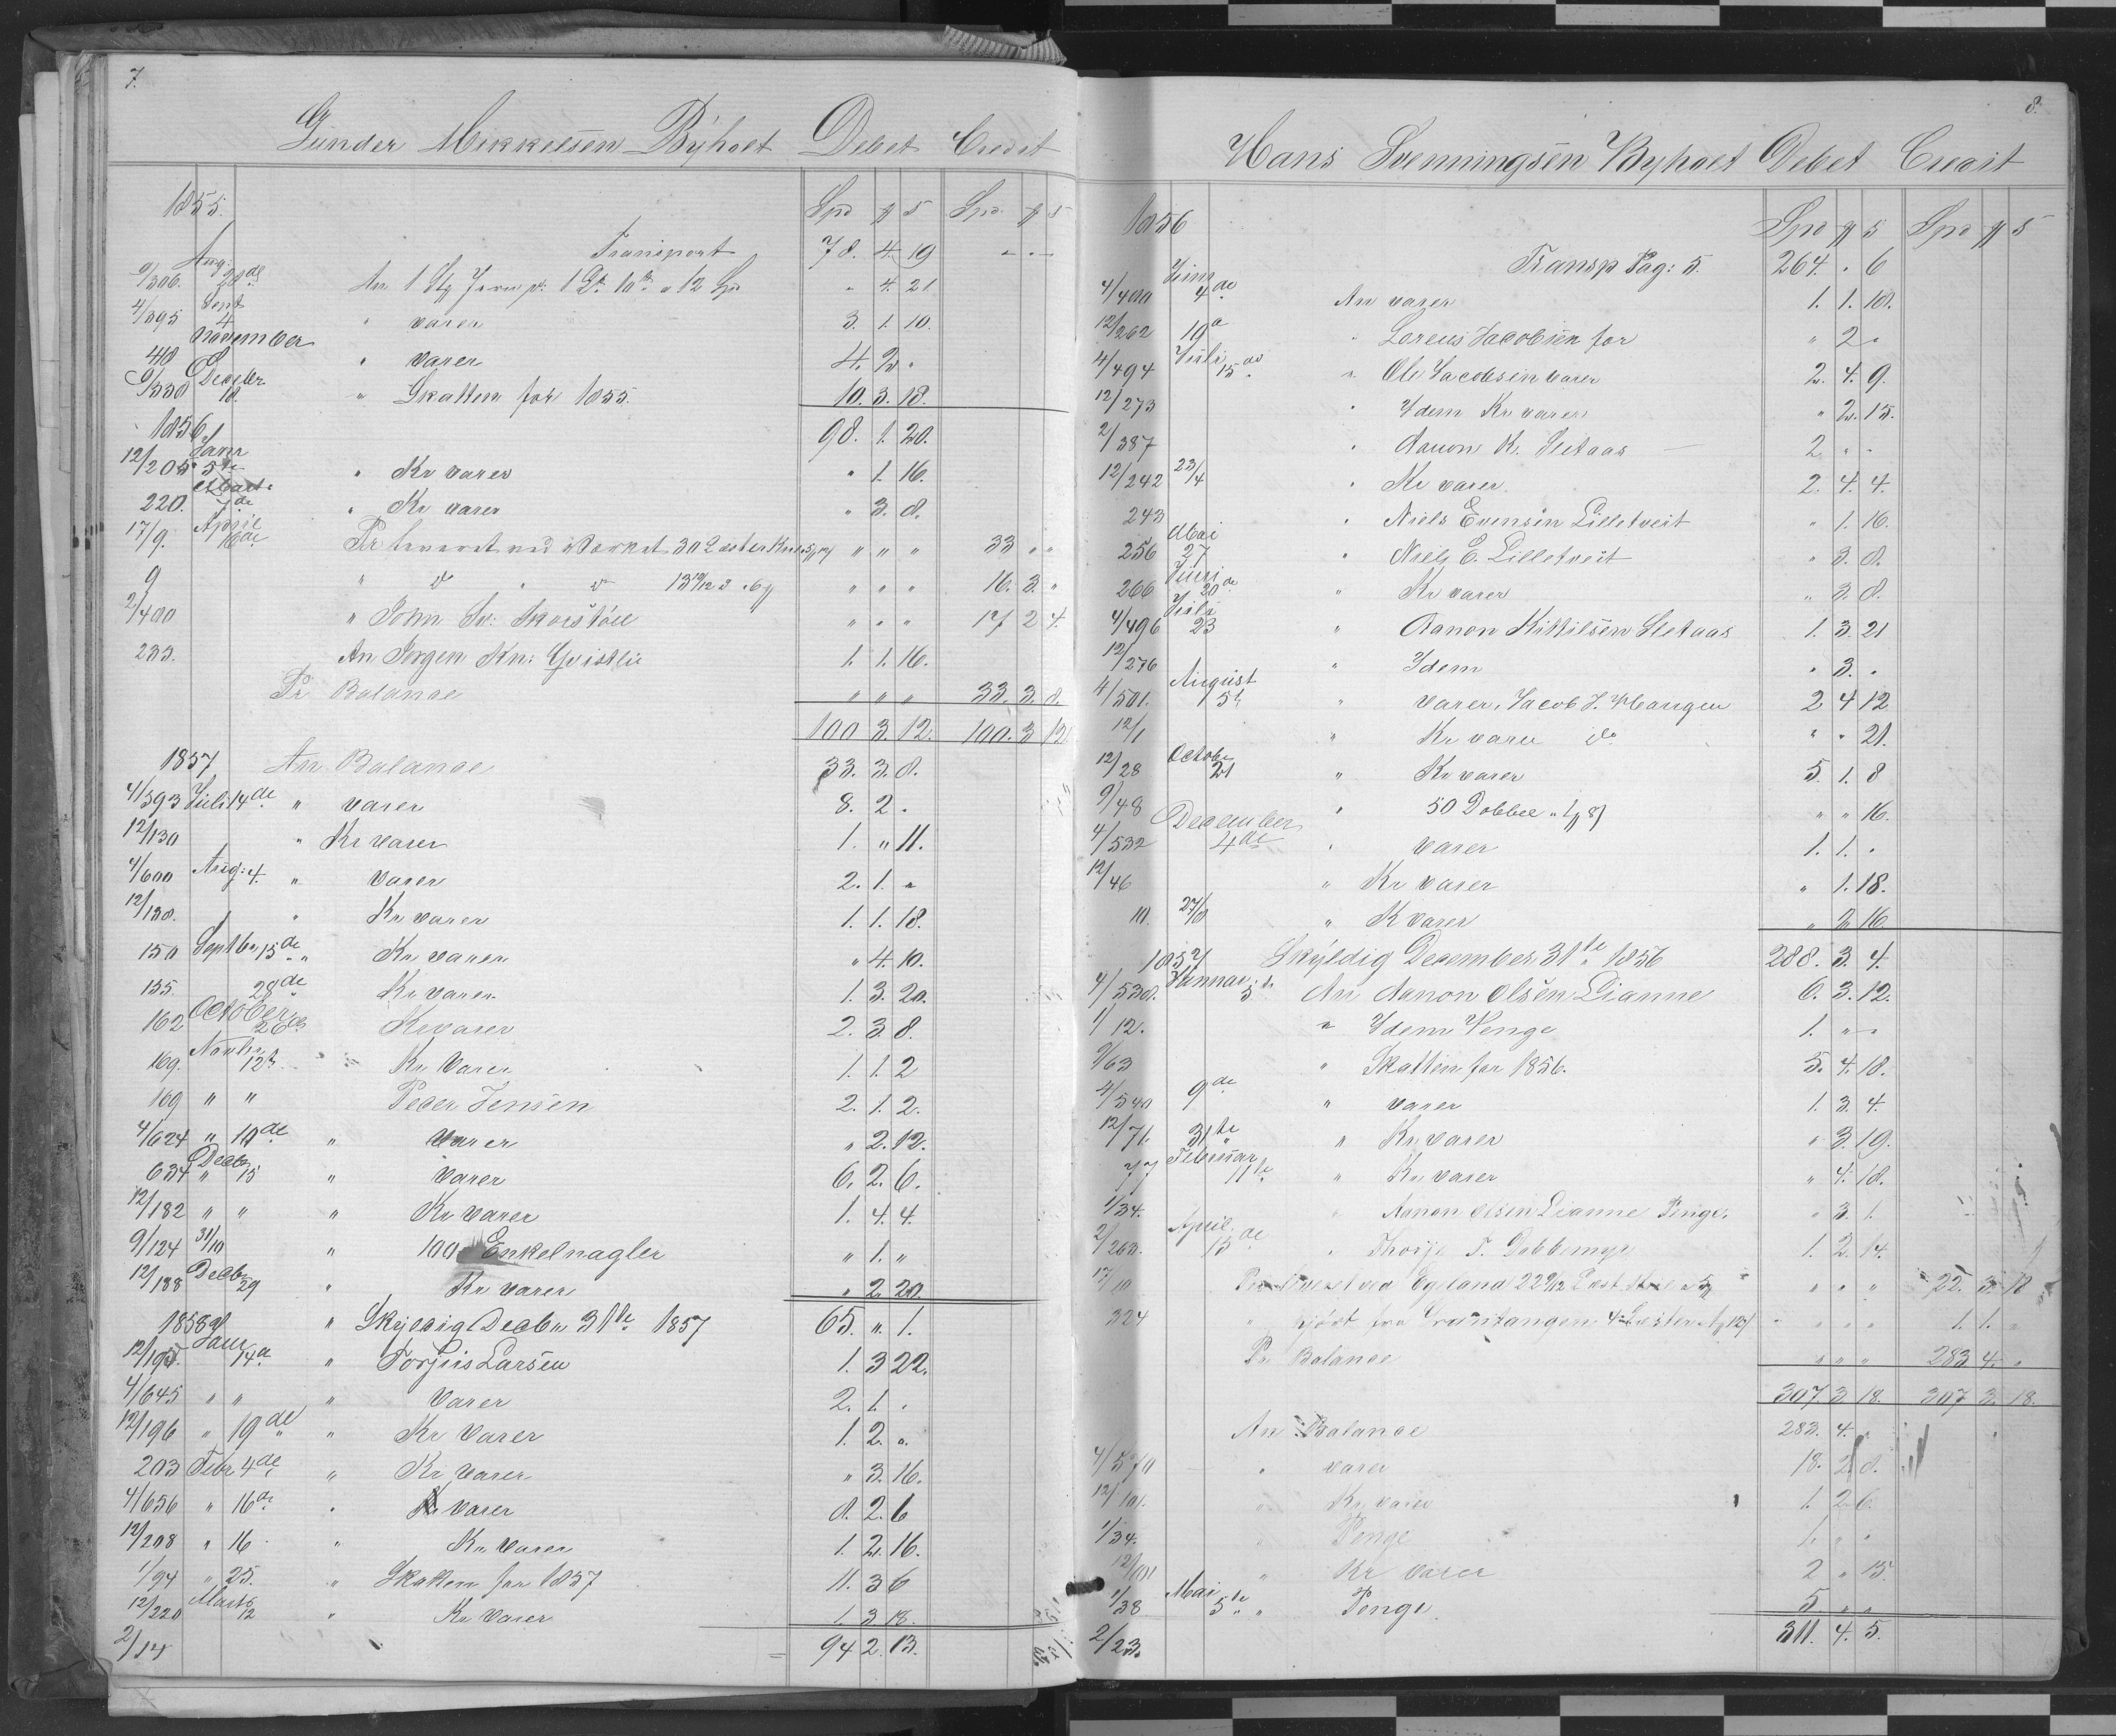 7.
Gunder Mikkelsen Byholt Debet Credit
1855. Spd ℳ ß Spd ℳ ß
Transport 78. 4. 19
9/306. Aug: 28de An 1 Stg Jern " 4. 21
4/395 Sept 4 " varer 3. 1. 10.
410 November " varer 4. 2. "
9/330 Decebr 18. " Skatten for 1855. 10. 3. 18.
1856 98. 1. 20.
12/205 Janr 5te " Kr varer " 1. 16.
220. Marts " Kr varer " 3. 8.
17/9. April 16de Pr leveret ved Værket 30 Læster " " " 33 " "
9 " do " do 13 " " " 16. 3. "
2/400 " John " " " 17 2 4.
233. An Jørgen Kn: Qvistlie 1. 1. 16.
Pr Balance " " " 33. 3. 8.
100 3. 12. 100. 3 12.
1857 An Balance 33. 3. 8.
4/593 Juli 14de " varer 8. 2. "
12/130 " Kr varer 1. " 11.
4/600 Aug: 4. " varer 2. 1. "
12/138. " Kr varer 1. 1. 18.
150 Septbr 15de " Kr varer " 4. 10.
155. 28de Kr varer 1. 3. 20.
162 October 26de Kr varer 2. 3 8.
169. Novbr 12te " Kr Varer 1. 1. 2
169 " " Peder Jensen 2. 1. 2.
4/624 " 19de " Varer " 2. 12.
634 Decbr " 15 " Varer 6. 2. 6.
12/182 " " " Kr varer 1. 4. 4.
9/124 31/10 " 100 Enkelnagler " 1. "
12/188 Decbr 29 " Kr varer " 2 20
1858 " Skyldig Decbr 31te 1857 65. " 1.
Janr 14de " Torjus Larsen 1. 3 22.
4/645 " " " Varer 2. 1. "
12/196 " 19de " Kr Varer 1. 2. "
203 Febr 4de " Kr Varer " 3. 16.
4/656 " 16de " varer 8. 2. 6
12/208 " 16 " Kr. Varer 1. 2. 16.
1/94 " 25. " Skatten for 1857 11. 3 6
12/220 Marts 12 " Kr Varer 1 3 18.
2/14 94 2. 13.
8.
Hans Svenningsen Byholt Debet Credit
1856 Spd ℳ ß Spd ℳ ß
Transp Pag: 5. 264. " 6
4/400 4de An varer 1. 1. 18.
12/262 19de " Lorens Jacobsen for " 2 "
4/494 Juli 15de " Ole Jacobsen varer 2. 4. 9.
12/273 " Idem Kr varer " 2. 15.
2/387 " Aanon K. Sletaas 2 " "
12/242 23/4 " Kr varer 2. 4. 4.
243 " Niels Evensen Lilletveit " 1. 16.
256 Mai 27 " Niels E. Lilletveit " 3. 8.
266 Juni 20de " Kr varer " 3. 8.
4/496 Juli 23 " Aanon Kittilsen Sletaas 1. 3. 21
12/276 " Idem " 3. "
4/501. August 5te " varer, Jacob J. Haugen 2 4 12
12/1 " Kr varer do " " 21.
12/28 October 21 " Kr varer 5. 1. 8
9/48 " 50 Dobbel " " 16.
4/532 December 4de " varer 1. 1. "
12/46 " Kr varer " 1. 18.
111. 27/8 " K varer " 2 16
1857 Skyldig December 31te 1856 288. 3. 4.
4/538. Januar 5te An Aanon Olsen Lianne 6. 3. 12.
1/12. " Idem Penge 1. " "
9/63 " Skatten for 1856. 5. 4. 18.
4/540 9de " varer 1. 3. 4.
12/71 31te " Kr varer " 3. 19.
77 Februar 11te " Kr. varer " 4. 18.
1/34. " Aanon Olsen Lianne Penge. " 3. 1.
2/263. April 15de " Thorje T. Dobbemyr 1. 2. 14.
17/10 Pr ved Egeland 22 9/12 Læst " " " 22. 3. 18
324 " kjørt fra 4 Læster " " " 1. 1. "
Pr Balance " " " 283 4. "
307 3. 18. 307 3. 18.
An Balance 283. 4. "
4/570 " varer 18. 2. 8.
12/101. " Kr. varer 1. 2. 6.
1/34. " Penge 1. " "
12/101 " Kr varer 2 " 15.
1/38 Mai 5te " Penge. 5 " "
2/23. 311. 4. 5.